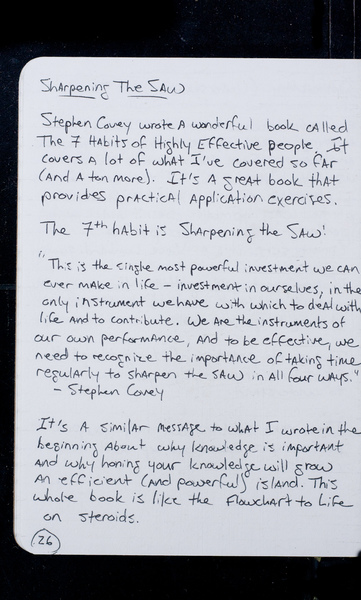 Sharpening The Saw
Stephen Covey wrote a wonderful book called
The 7 Habits of Highly Effective People. It
covers a lot of what I've covered so far
(and a ton more). It's a great book that
provides practical application exercises.
The 7th habit is Sharpening the Saw!
"This is the single most powerful investment we can
ever make in life – investment in ourselves, in the
only instrument we have with which to deal with
life and to contribute. We are the instruments of
our own performance, and to be effective, we
need to recognize the importance of taking time
regularly to sharpen the saw in all four ways."
– Stephen Covey
It's a similar message to what I wrote in the
beginning about why knowledge is important
and why honing your knowledge will grow
an efficient (and powerful) island. This
whole book is like the Flowchart to Life
on steroids.
26